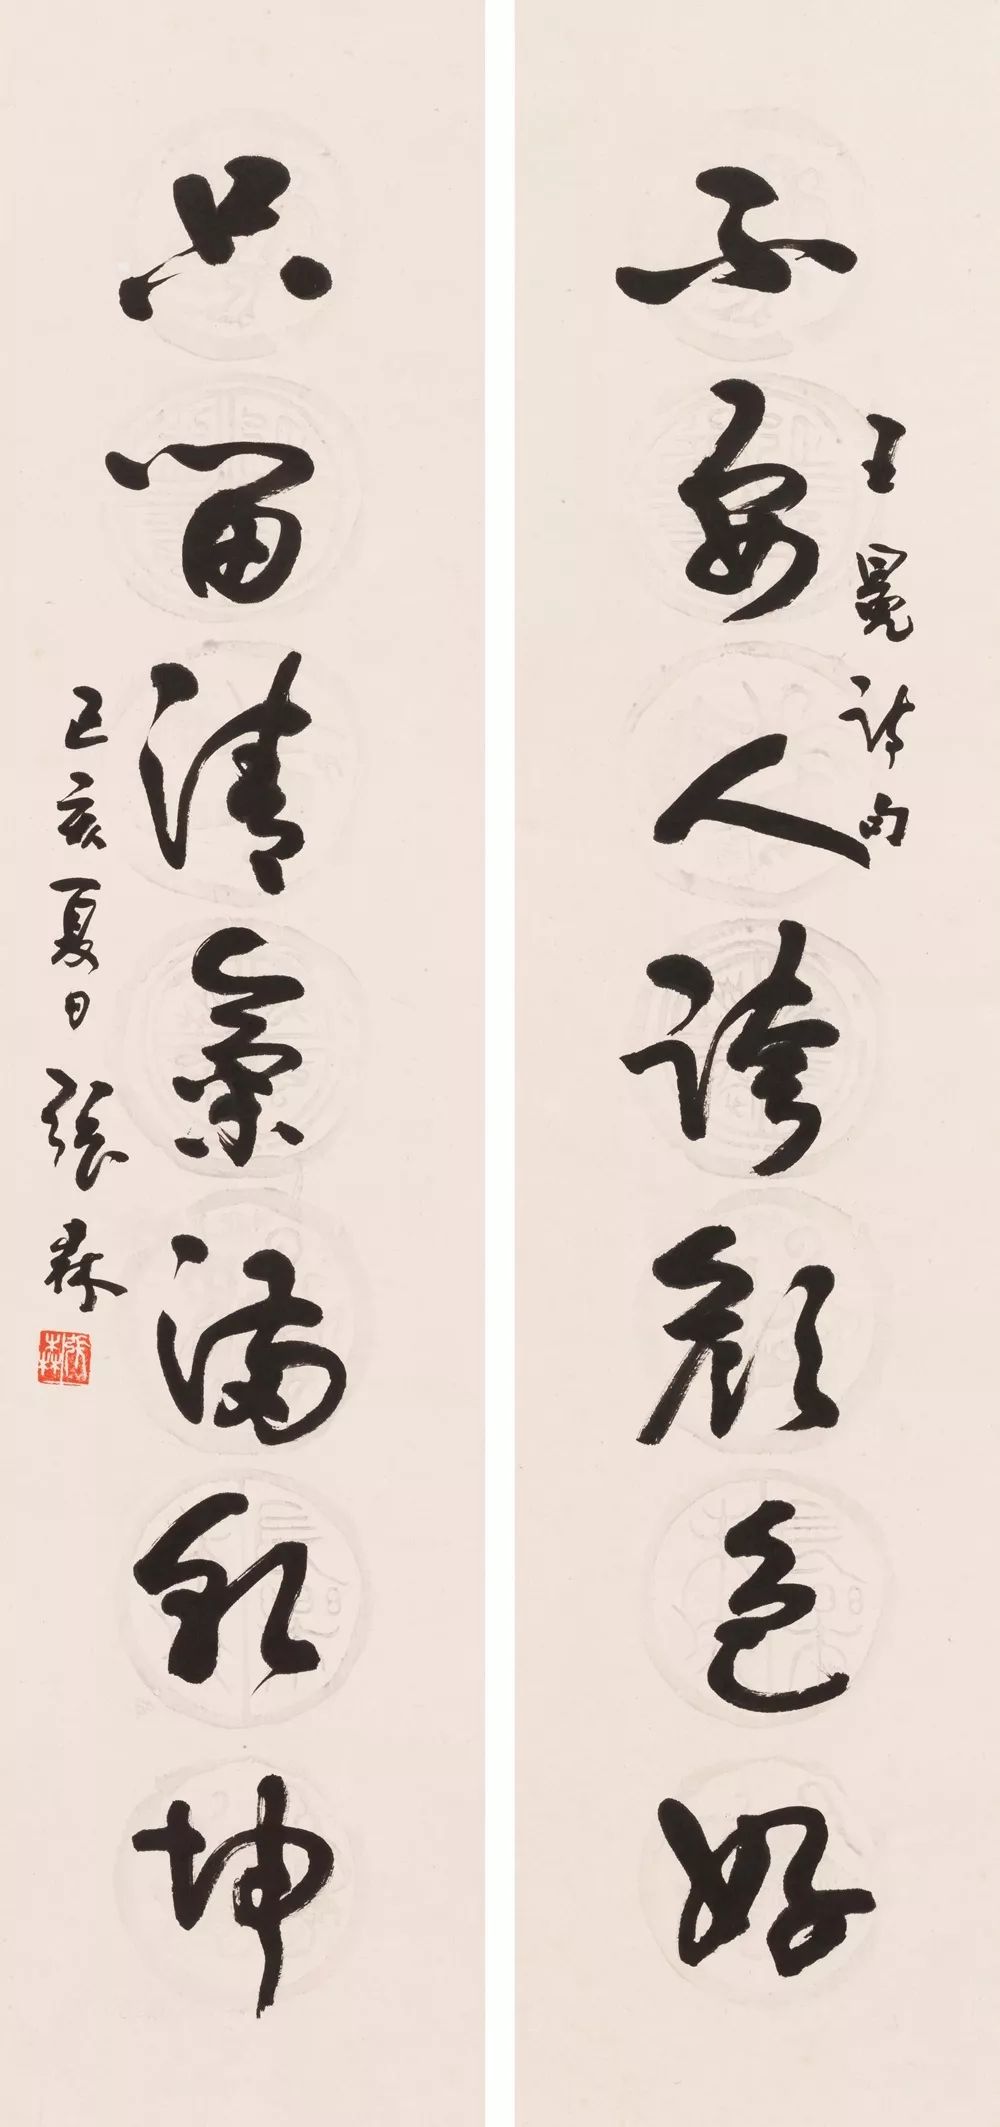 不要人誇顏色好
王冕詩句
只留清氣滿乾坤
己亥夏日張森
張森